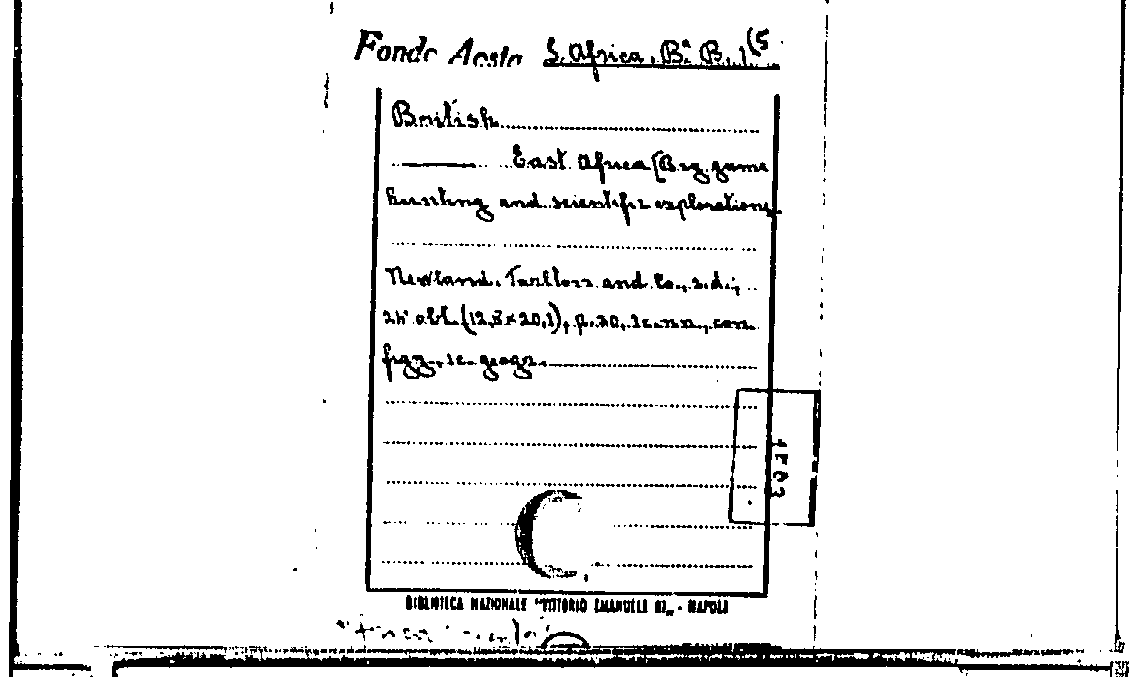 Fondo Aosta S. Africa. Bª B. 1(5
British
East Africa (Big game
hunting and scientific explorations
Newland, Tarlton and Co., s.d.,
obl. (12,8×20,1), p. 30, con
figg. geogr.
BIBLIOTECA NAZIONALE "VITTORIO EMANUELE III" - NAPOLI